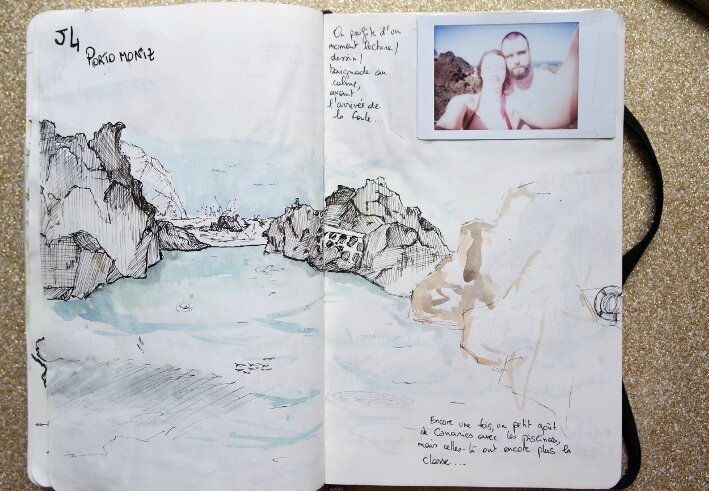 J4
PORTO MONIZ
On profite d'un
moment lecture/
dessin/
baignade au
calme,
avant
l'arrivée de
la foule...
Encore une fois, un petit goût
de Canaries avec les piscinas,
mais celles-là ont encore plus la
classe...